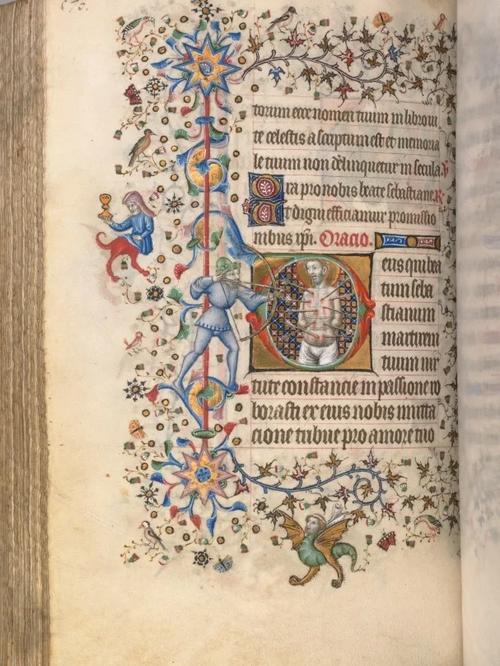 torum ecce nomen tuum in libro vi
te celestis asceptum est et memoria
le tuum non delinquetur in secula. V
Ora pro nobis beate sebastiane. R
Ut digni efficiamur promissio
nibus xpi. Oracio.
Deus qui bea
tum seba
stianum
martirem
tuum vir
tute constancie in passione ro
borasti ex eius nobis imitta
cione tribue pro amore tuo